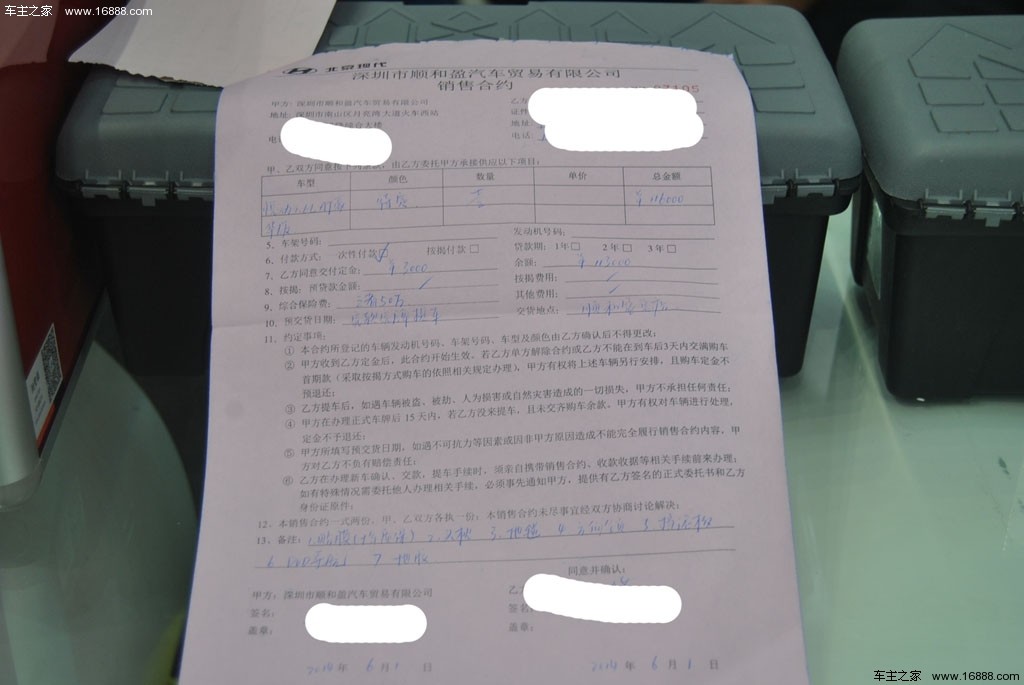 车主之家 www.16888.com
北京现代
深圳市顺和盈汽车贸易有限公司
销售合约
甲方: 深圳市顺和盈汽车贸易有限公司
乙方
地址: 深圳市南山区月亮湾大道火车西站
证件
地址
电
电话:
甲、乙双方同意按下列条款,由乙方委托甲方承接供应以下项目:
车型 颜色 数量 单价 总金额
壹 ¥116000
5、车架号码: 发动机号码:
6、付款方式: 一次性付款☑ 按揭付款□ 贷款期: 1年□ 2年□ 3年□
7、乙方同意交付定金: ¥3000 余额: ¥113000
8、按揭: 预贷款金额: / 按揭费用: /
9、综合保险费: 50万 其他费用: /
10、预交货日期: 交货地点: 顺和盈
11、约定事项:
① 本合约所登记的车辆发动机号码、车架号码、车型及颜色由乙方确认后不得更改;
② 甲方收到乙方定金后,此合约开始生效,若乙方单方解除合约或乙方不能在到车后3天内交满购车
首期款(采取按揭方式购车的依照相关规定办理),甲方有权将上述车辆另行安排,且购车定金不
预退还;
③ 乙方提车后,如遇车辆被盗、被劫、人为损害或自然灾害造成的一切损失,甲方不承担任何责任;
④ 甲方在办理正式车牌后 15 天内,若乙方没来提车,且未交齐购车余款,甲方有权对车辆进行处理,
定金不予退还;
⑤ 甲方所填写预交货日期,如遇不可抗力等因素或因非甲方原因造成不能完全履行销售合约内容,甲
方对乙方不负有赔偿责任;
⑥ 乙方在办理新车确认、交款,提车手续时,须亲自携带销售合约、收款收据等相关手续前来办理;
如有特殊情况需委托他人办理相关手续,必须事先通知甲方,提供有乙方签名的正式委托书和乙方
身份证原件;
12、本销售合约一式两份,甲、乙双方各执一份;本销售合约未尽事宜经双方协商讨论解决;
13、备注: 1.贴膜 2. 3.地毯 4. 5.
6. DVD导航 7.地胶
同意并确认:
甲方: 深圳市顺和盈汽车贸易有限公司 乙方
签名: 签名
盖章: 盖章:
2014 年 6 月 1 日 2014 年 6 月 1 日
车主之家 www.16888.com